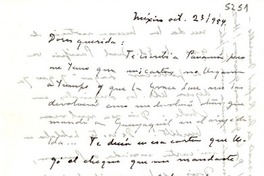 5251
México oct. 23/954
Doris querida:
Te escribí a Panamá pero
me temo que mi carta no llegara
a tiempo y que la Grace Line nos la
devolverá como me devolvió una que
mandé a Guayaquil en el viaje de
ida. Te decía en esa carta que lle-
gó el cheque que me mandaste